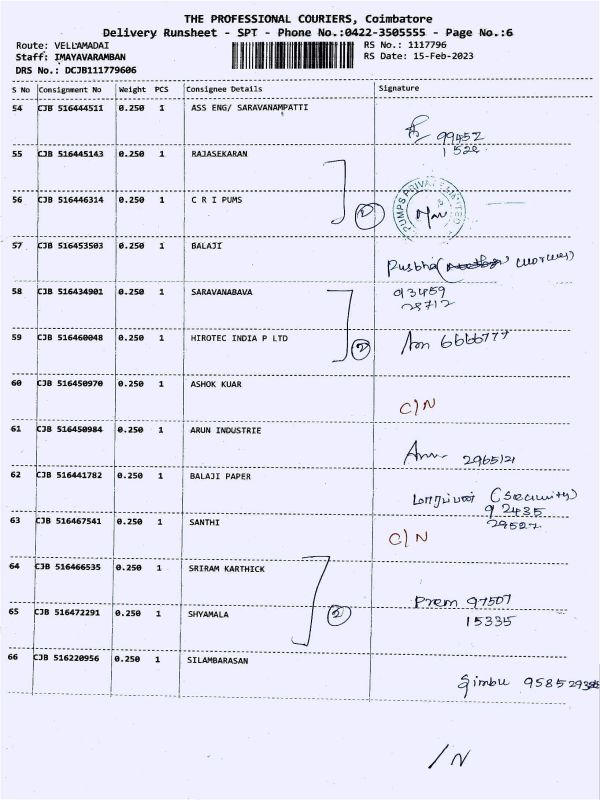 THE PROFESSIONAL COURIERS, Coimbatore
Delivery Runsheet - SPT - Phone No.:0422-3505555 - Page No.:6
Route: VELLAMADAI RS No.: 1117796
Staff: IMAYAVARAMBAN RS Date: 15-Feb-2023
DRS No.: DCJB111779606
S No Consignment No Weight PCS Consignee Details Signature
54 CJB 516444511 0.250 1 ASS ENG/ SARAVANAMPATTI
99452
1522
55 CJB 516445143 0.250 1 RAJASEKARAN
56 CJB 516446314 0.250 1 C R I PUMS
2
PUMPS PRIVATE LIMITED
57 CJB 516453503 0.250 1 BALAJI
Pusbha
58 CJB 516434901 0.250 1 SARAVANABAVA
93459
28712
59 CJB 516460048 0.250 1 HIROTEC INDIA P LTD
2 6666777
60 CJB 516450970 0.250 1 ASHOK KUAR
C/N
61 CJB 516450984 0.250 1 ARUN INDUSTRIE
2965121
62 CJB 516441782 0.250 1 BALAJI PAPER
(Security)
92435
29527
63 CJB 516467541 0.250 1 SANTHI
C/N
64 CJB 516466535 0.250 1 SRIRAM KARTHICK
Prem 97507
65 CJB 516472291 0.250 1 SHYAMALA 2
15335
66 CJB 516220956 0.250 1 SILAMBARASAN
Simbu
/N